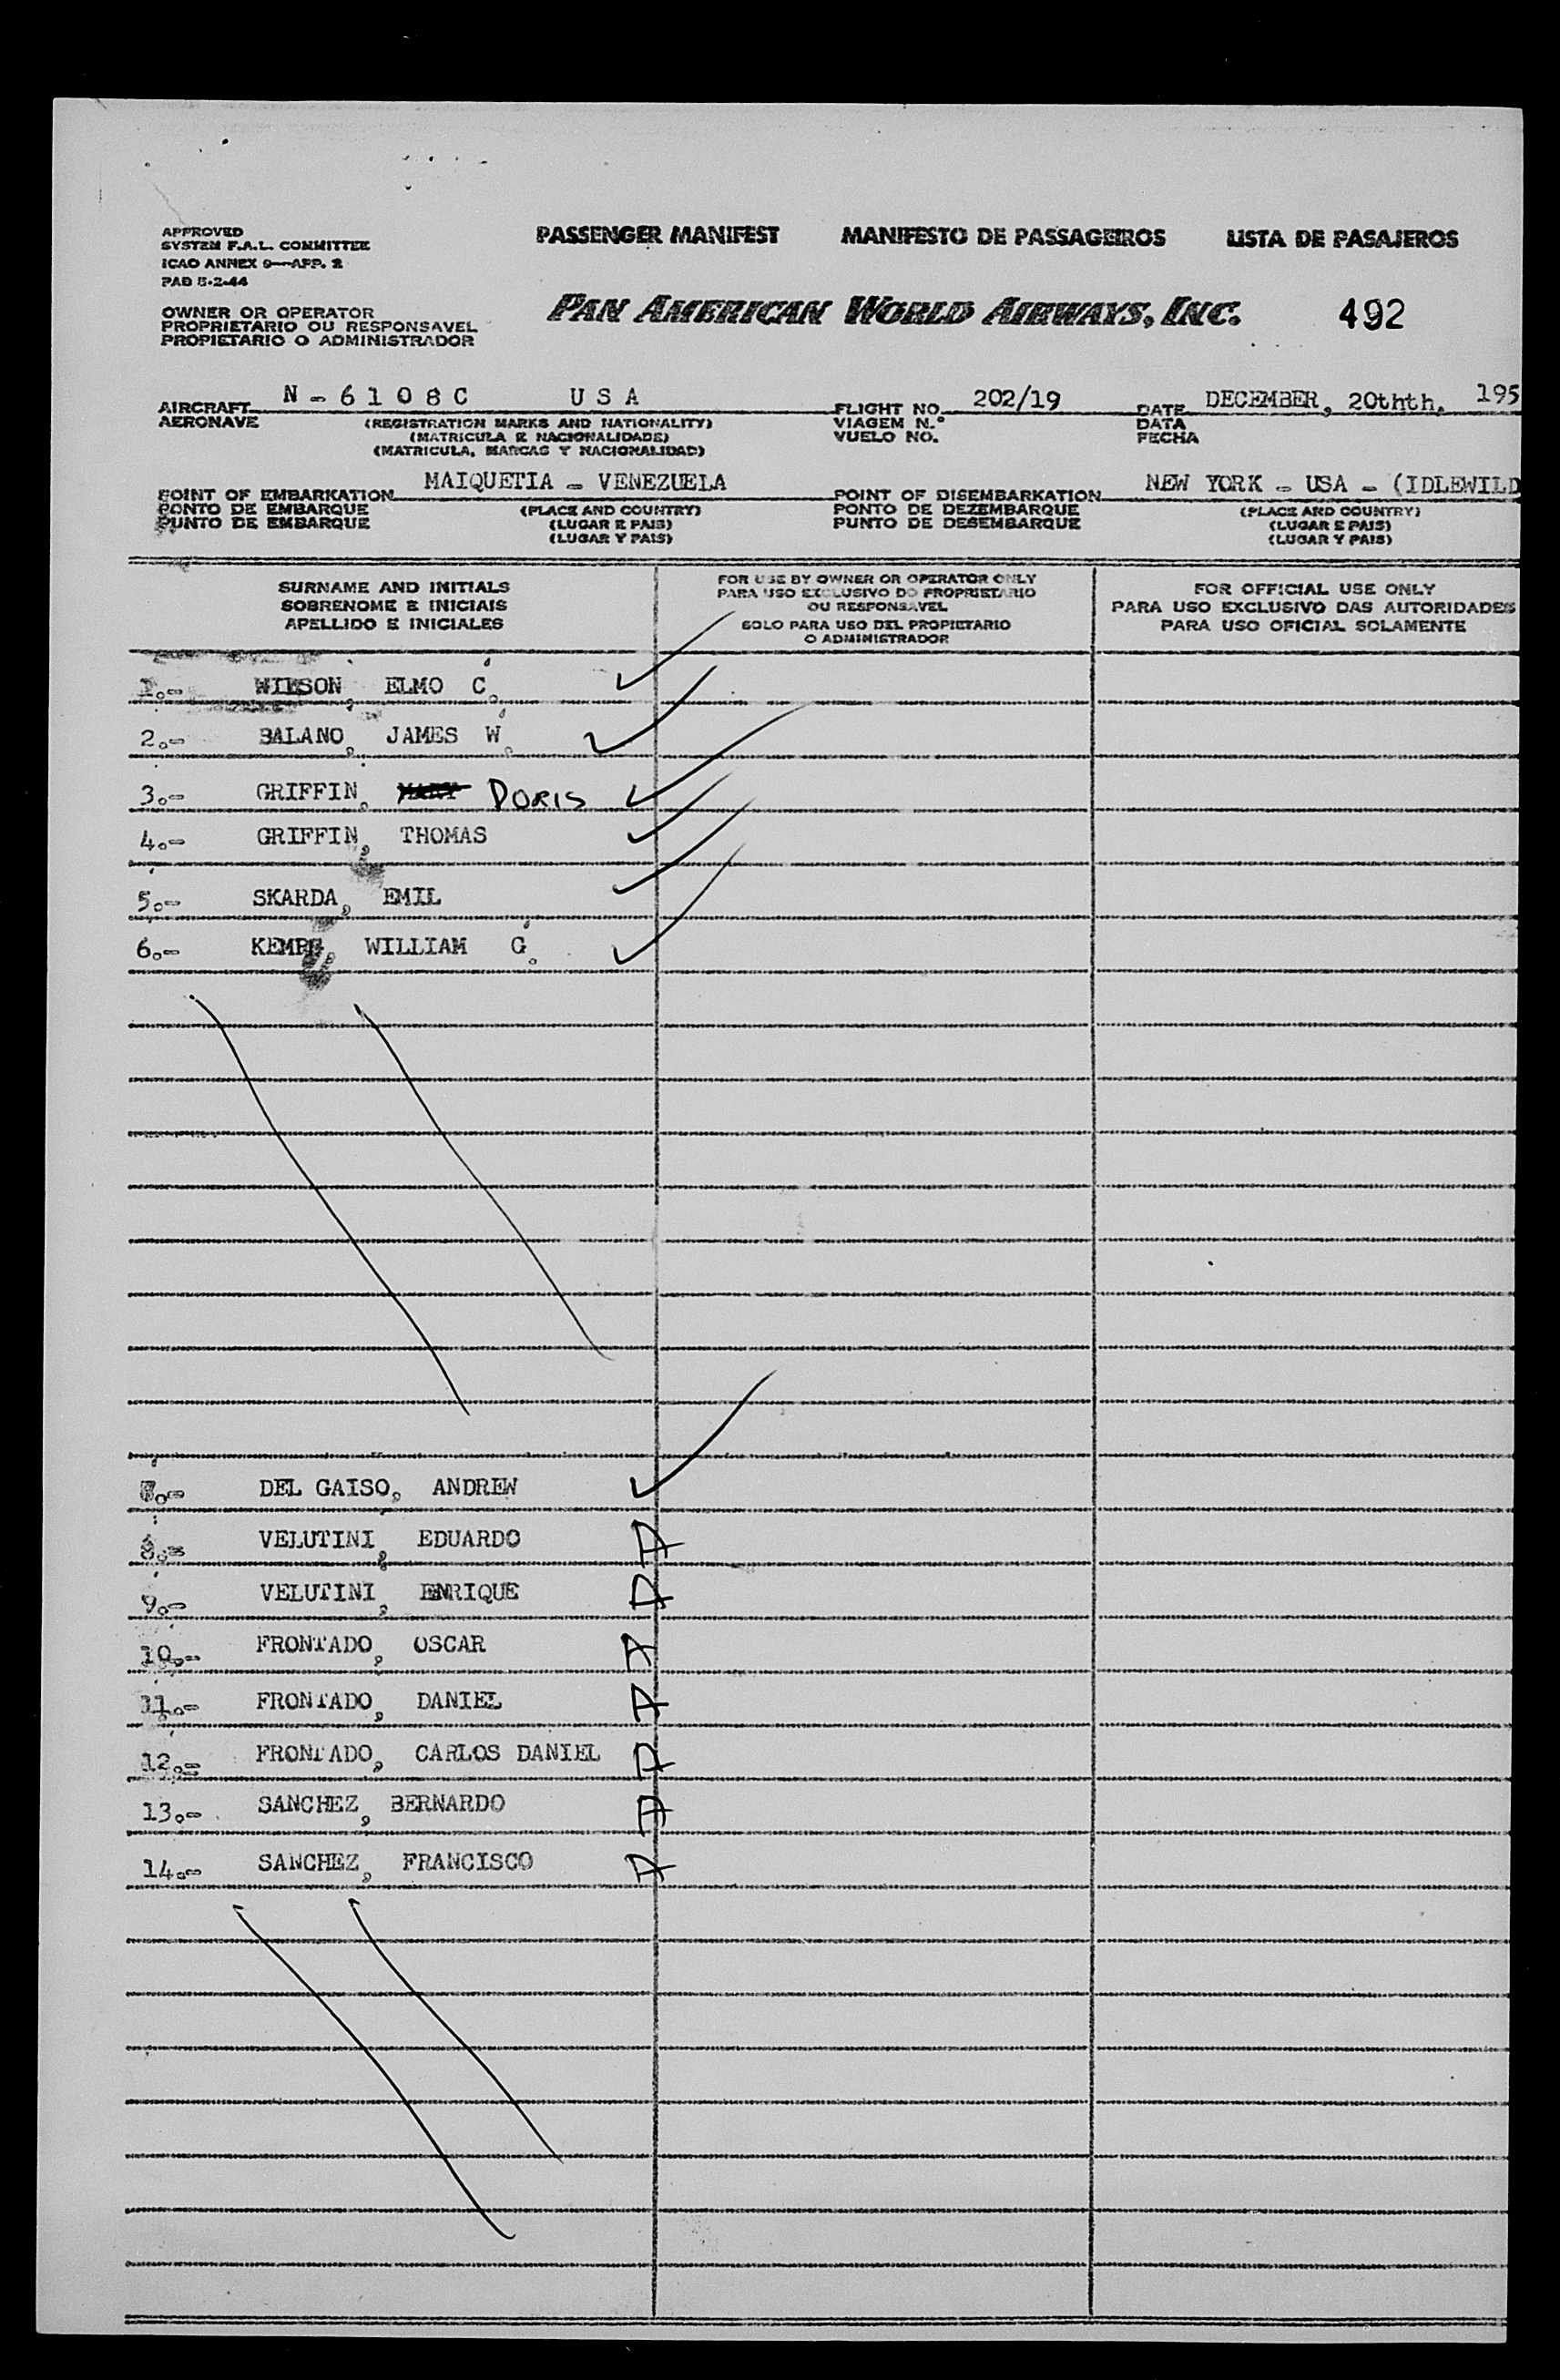 APPROVED
SYSTEM F.A.L. COMMITTEE
ICAO ANNEX 9—APP. 2
PAD 5-2-44
PASSENGER MANIFEST MANIFESTO DE PASSAGEIROS LISTA DE PASAJEROS
OWNER OR OPERATOR
PROPRIETARIO OU RESPONSAVEL
PROPIETARIO O ADMINISTRADOR
PAN AMERICAN WORLD AIRWAYS, INC. 492
AIRCRAFT N-6108C USA FLIGHT NO. 202/19 DATE DECEMBER, 20thth. 195
AERONAVE (REGISTRATION MARKS AND NATIONALITY) VIAGEM N.º DATA
(MATRICULA E NACIONALIDADE) VUELO NO. FECHA
(MATRICULA, MARCAS Y NACIONALIDAD)
POINT OF EMBARKATION MAIQUETIA - VENEZUELA POINT OF DISEMBARKATION NEW YORK - USA - (IDLEWILD
PONTO DE EMBARQUE (PLACE AND COUNTRY) PONTO DE DEZEMBARQUE (PLACE AND COUNTRY)
PUNTO DE EMBARQUE (LUGAR E PAIS) PUNTO DE DESEMBARQUE (LUGAR E PAIS)
(LUGAR Y PAIS) (LUGAR Y PAIS)
SURNAME AND INITIALS
SOBRENOME E INICIAIS
APELLIDO E INICIALES
FOR USE BY OWNER OR OPERATOR ONLY
PARA USO EXCLUSIVO DO PROPRIETARIO
OU RESPONSAVEL
SOLO PARA USO DEL PROPIETARIO
O ADMINISTRADOR
FOR OFFICIAL USE ONLY
PARA USO EXCLUSIVO DAS AUTORIDADES
PARA USO OFICIAL SOLAMENTE
1.- WILSON, ELMO C.
2.- BALANO, JAMES W.
3.- GRIFFIN, DORIS
4.- GRIFFIN, THOMAS
5.- SKARDA, EMIL
6.- WILLIAM G.
7.- DEL GAISO, ANDREW
8.- VELUTINI, EDUARDO A
9.- VELUTINI, ENRIQUE A
10.- FRONTADO, OSCAR A
11.- FRONTADO, DANIEL A
12.- FRONTADO, CARLOS DANIEL A
13.- SANCHEZ, BERNARDO A
14.- SANCHEZ, FRANCISCO A